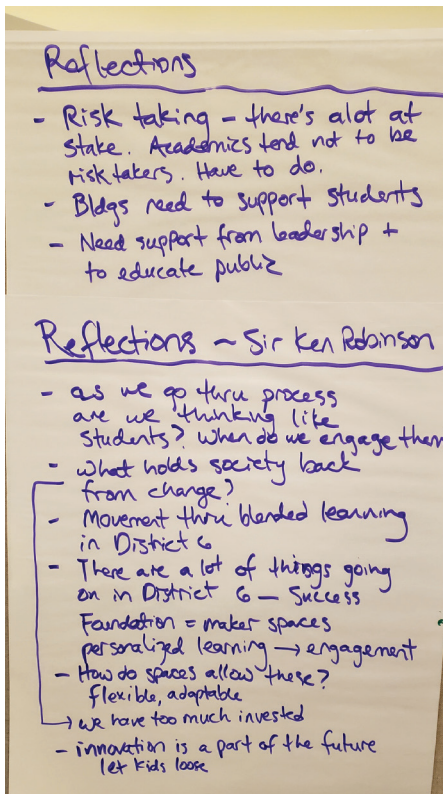 Reflections
- Risk taking - there's alot at
stake. Academics tend not to be
risk takers. Have to do.
- Bldgs need to support students
- Need support from leadership +
to educate public
Reflections ~ Sir Ken Robinson
- as we go thru process
are we thinking like
students? When do we engage them
- what holds society back
from change?
- Movement thru blended learning
in District 6
- There are a lot of things going
on in District 6 - Success
Foundation = maker spaces
personalized learning → engagement
- How do spaces allow these?
flexible, adaptable
→ we have too much invested
- innovation is a part of the future
let kids loose